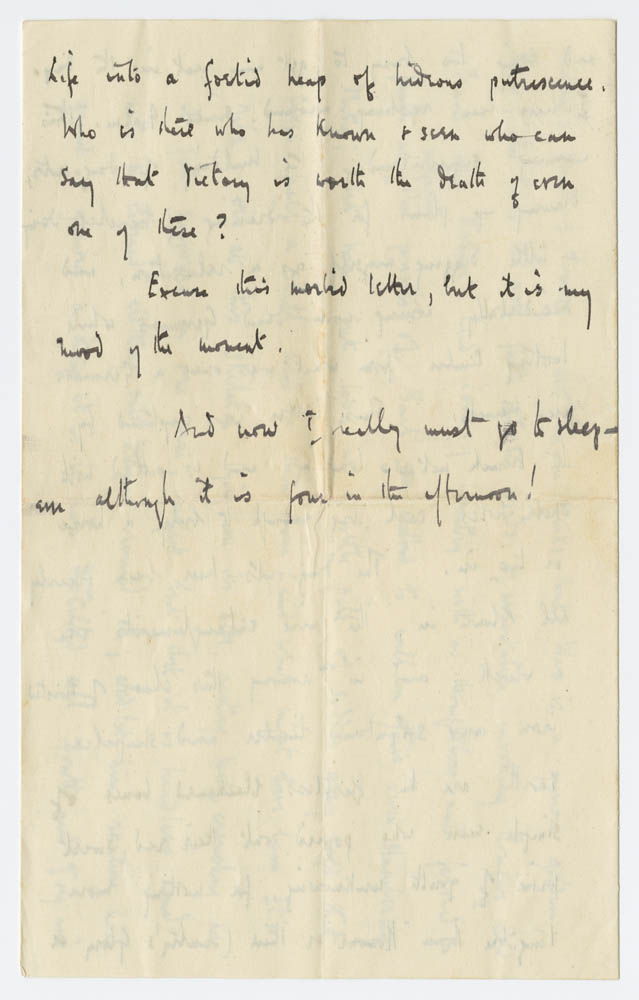 Life into a foetid heap of hideous putrescence.
Who is there who has known & seen who can
say that Victory is worth the death of even
one of these?
Excuse this morbid letter, but it is my
mood of the moment.
And now I really must go to sleep –
although it is four in the afternoon!